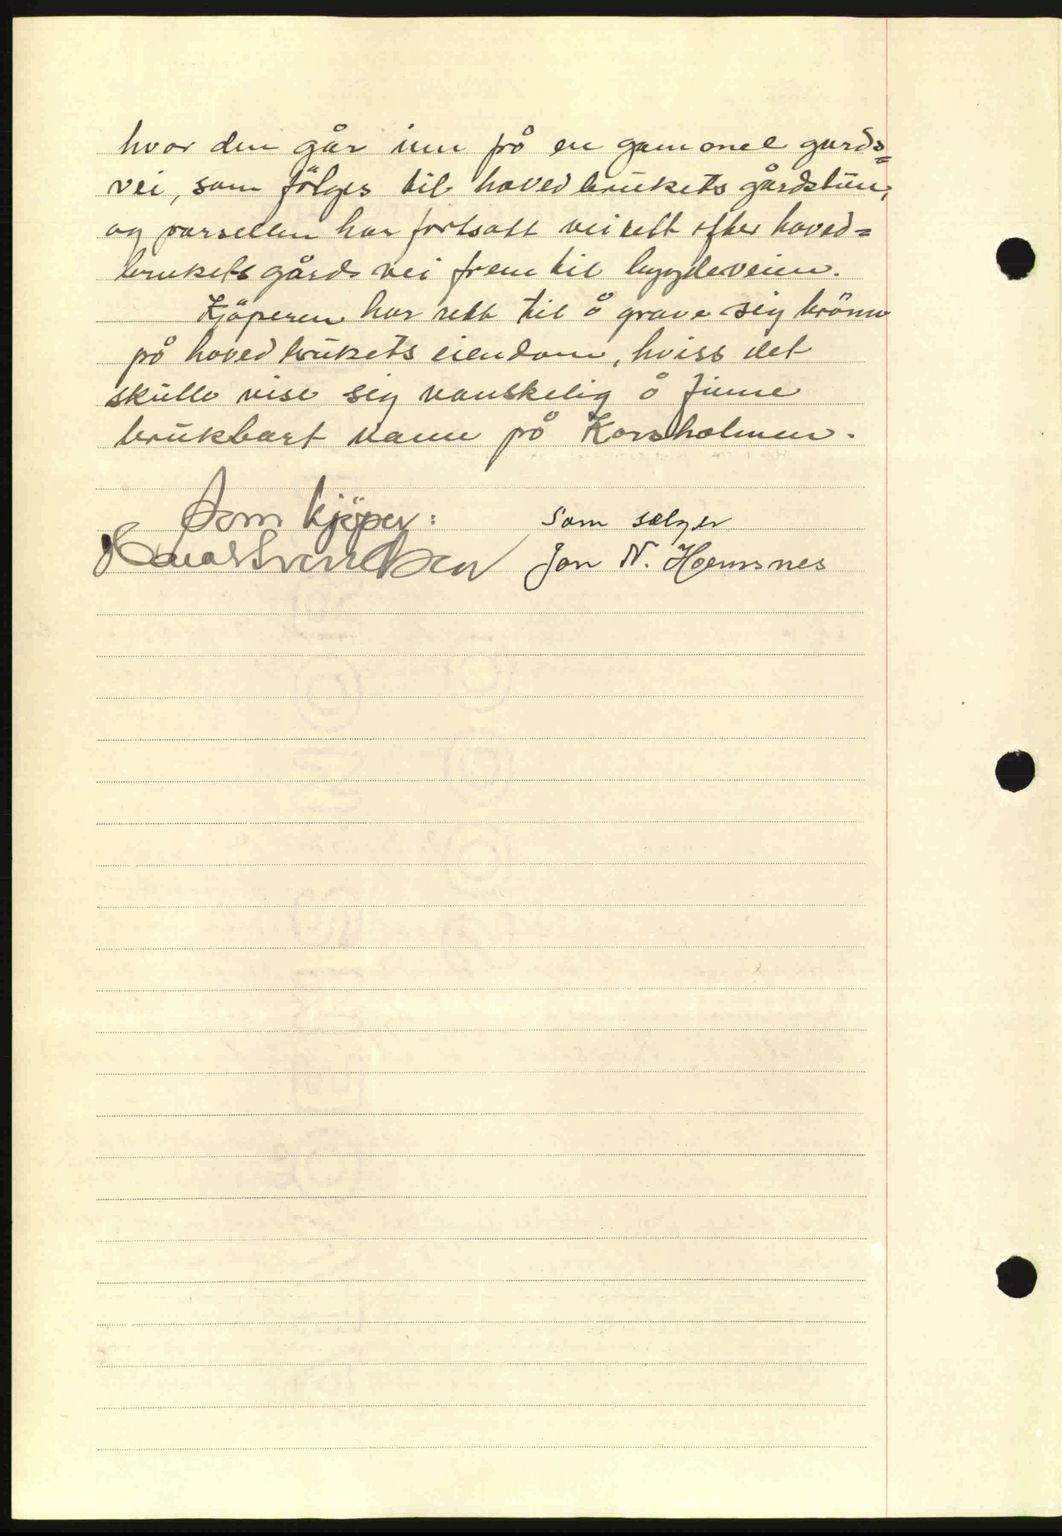 hvor den går inn på en gammel gards=
vei, som fölges til hovedbrukets gårdstun,
og parsellen har fortsatt veirett efter hoved=
brukets gårdsvei frem til bygdeveien.
Kjöperen har rett til å grave sig brönn
på hovedbrukets eiendom, hviss det
skulle vise sig vanskelig å finne
brukbart vann på Korsholmen.
Som kjöper: Som selger
Jon N. Hoemsnes